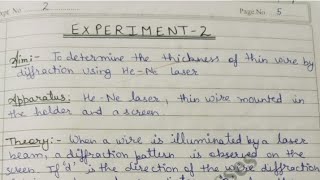 Expt No. 2
Page No. 5
EXPERIMENT-2
Aim:- To determine the thickness of thin wire by
diffraction using He-Ne laser
Apparatus: He-Ne laser, thin wire mounted in
the holder and a screen.
Theory:- When a wire is illuminated by a laser
beam, a diffraction pattern is observed on the
screen. If 'd' is the direction of the wire diffraction